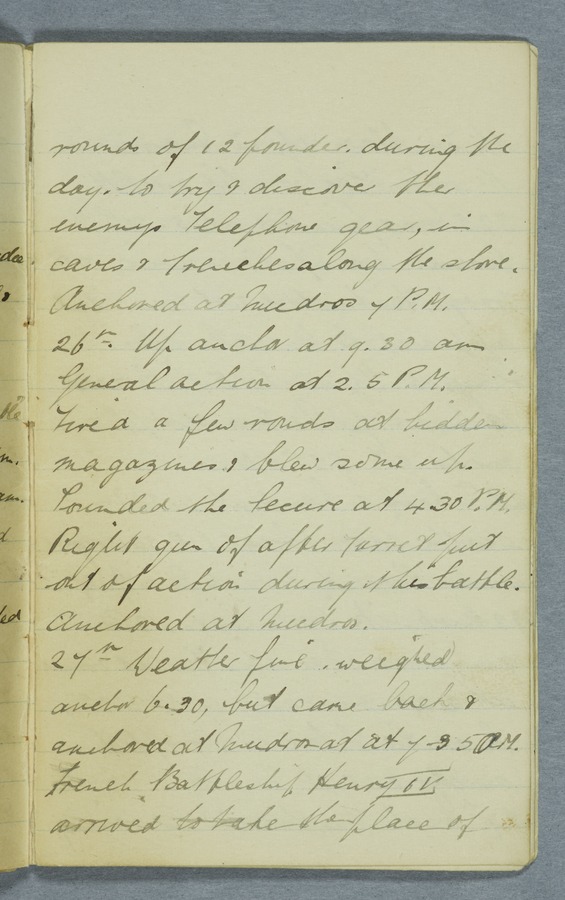 rounds of 12 pounder. during the
day. to try & discover the
enemys Telephone gear, in
caves & trenches along the shore.
Anchored at Mudros 7 P.M.
26th. Up anchor at 9.30 am
General action at 2.5 P.M.
Fired a few rounds at hidden
magazines & blew some up.
Sounded the Secure at 4.30 P.M.
Right gun of after turret put
out of action during this battle.
Anchored at Mudros.
27th Weather fine. weighed
anchor 6.30, but came back &
anchored at Mudros at at 7-35 AM.
French Battleship Henry IV
arrived to take the place of